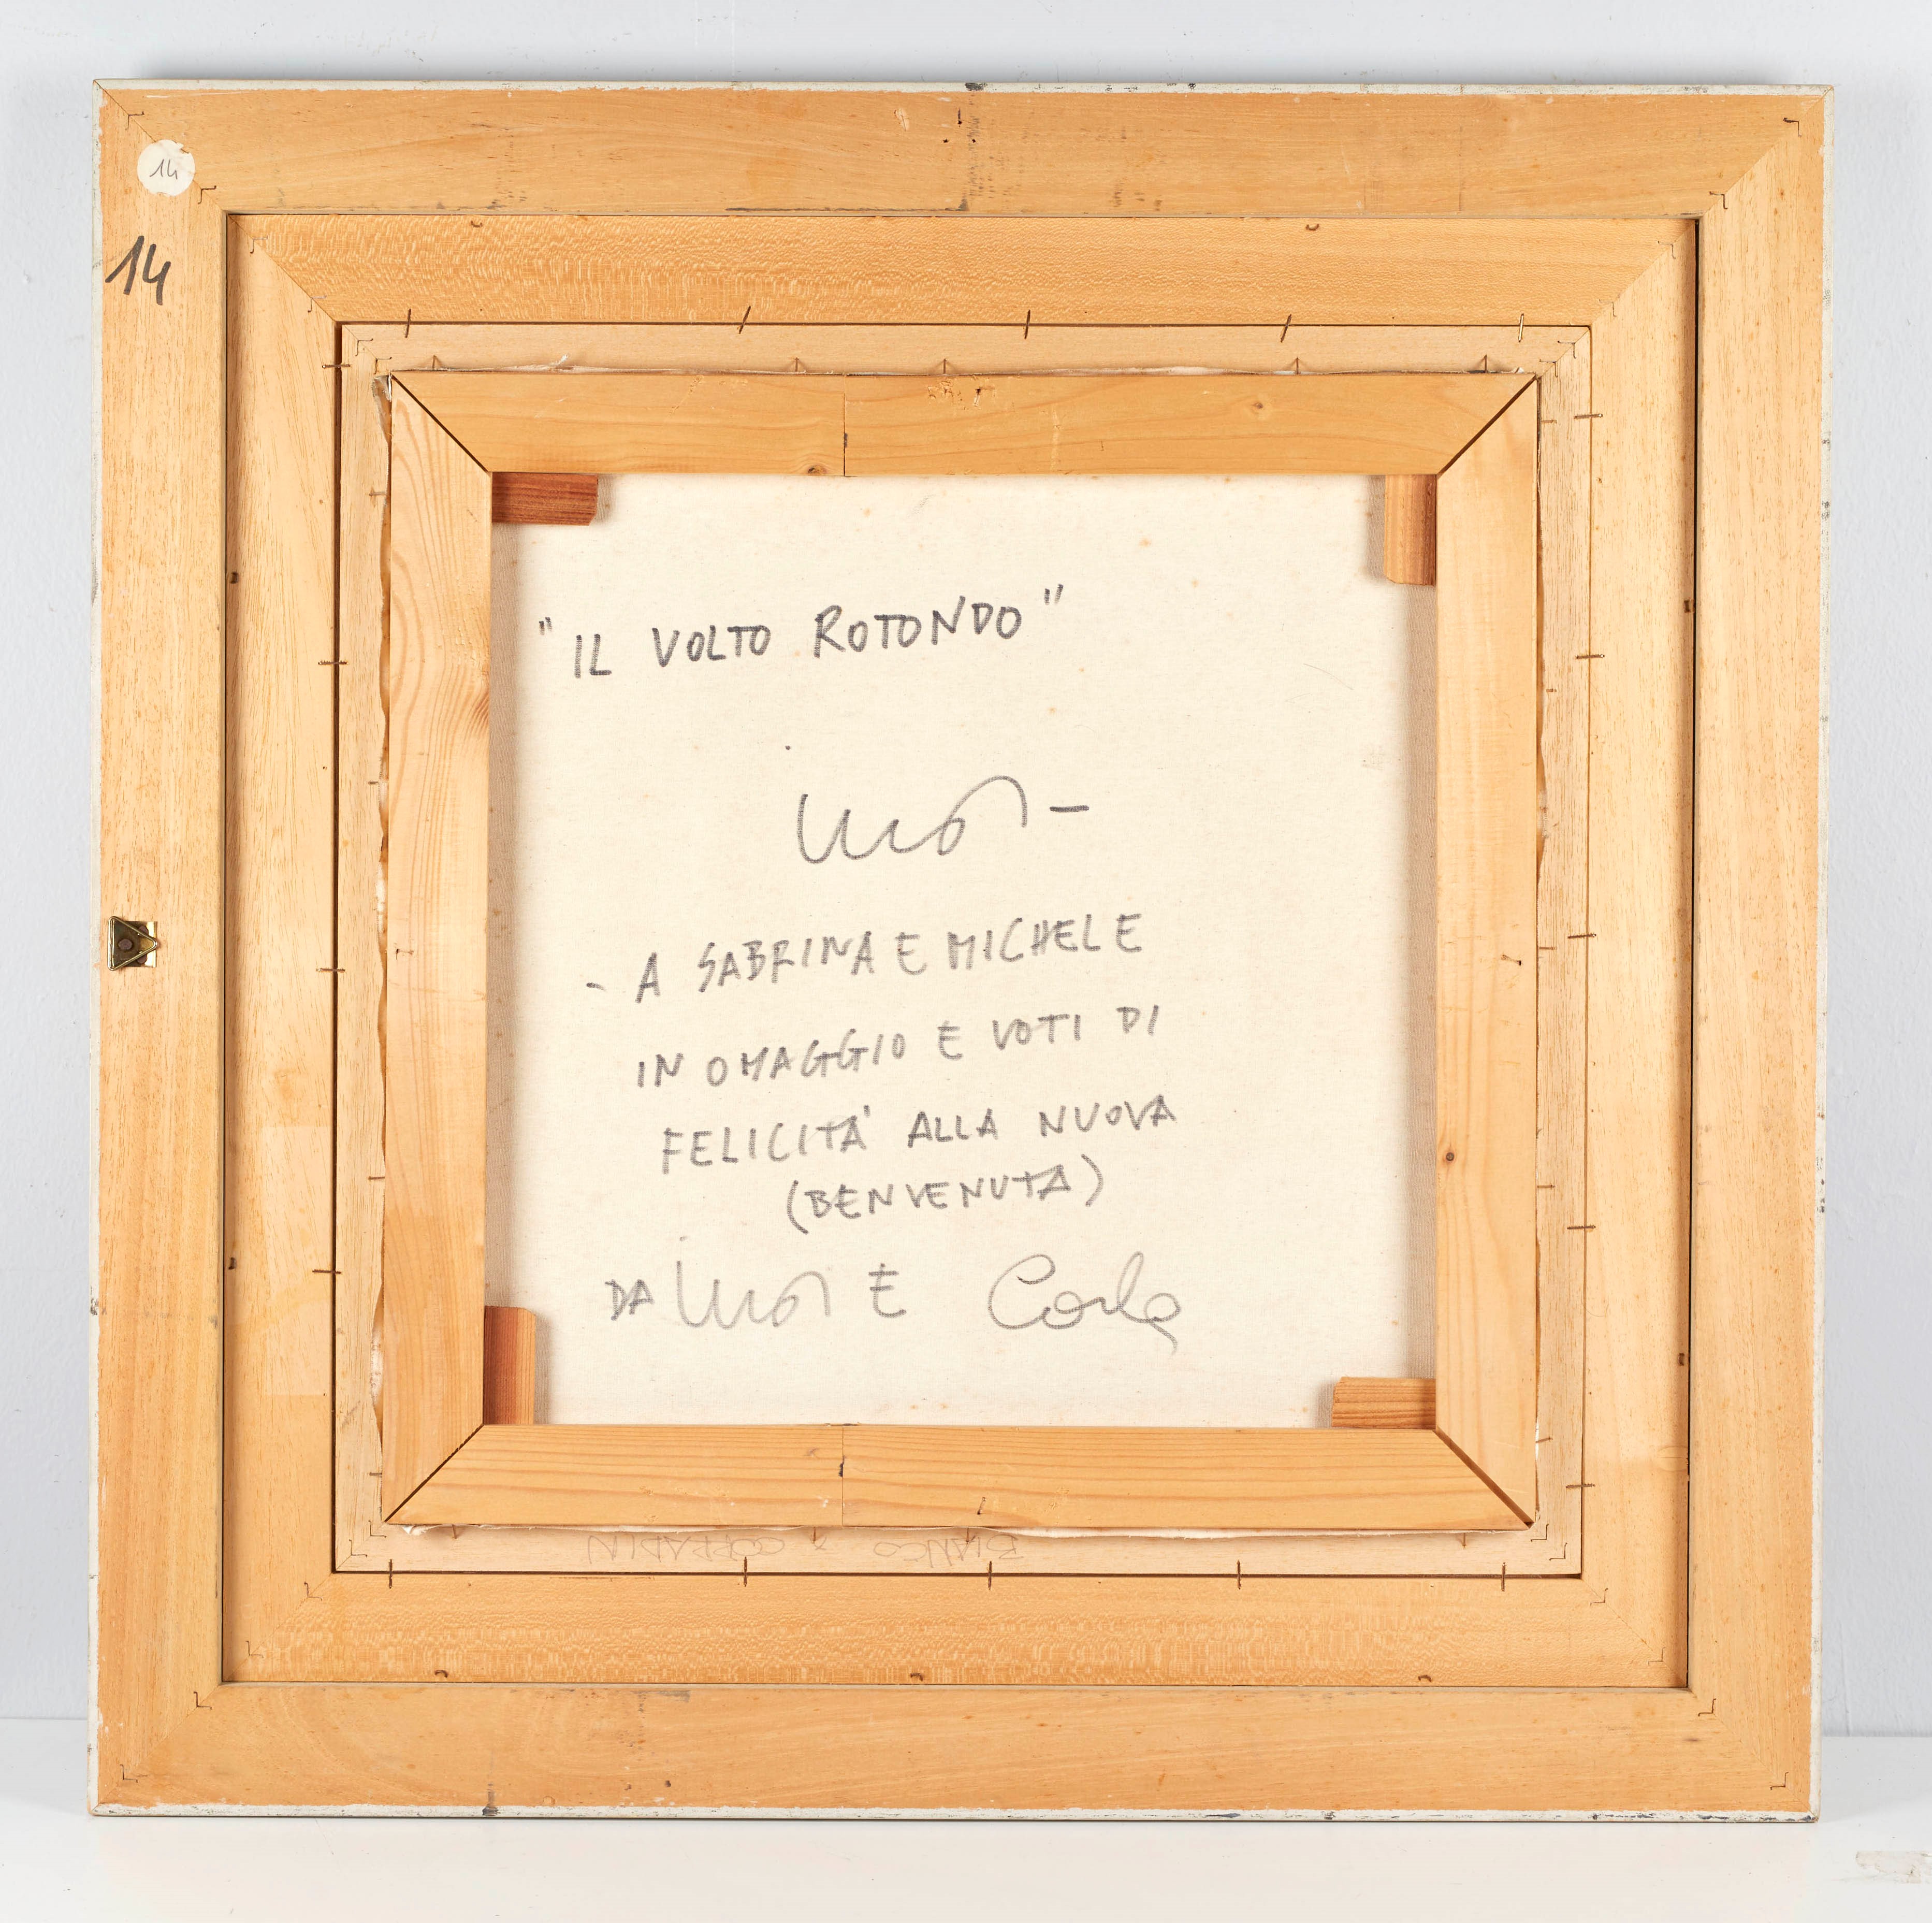 14
14
"IL VOLTO ROTONDO"
- A SABRINA E MICHELE
IN OMAGGIO E VOTI DI
FELICITA' ALLA NUOVA
(BENVENUTA)
DA E Carla
BIANCO X CORRADIN